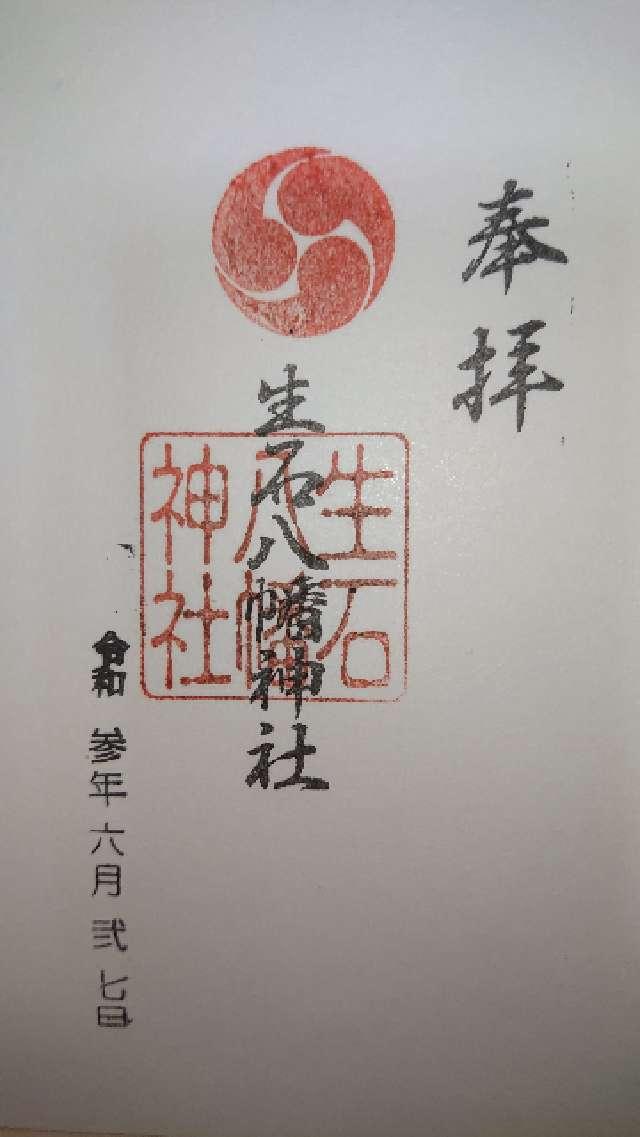 奉拝
生石八幡神社
生石
八幡
神社
令和参年六月弐七日